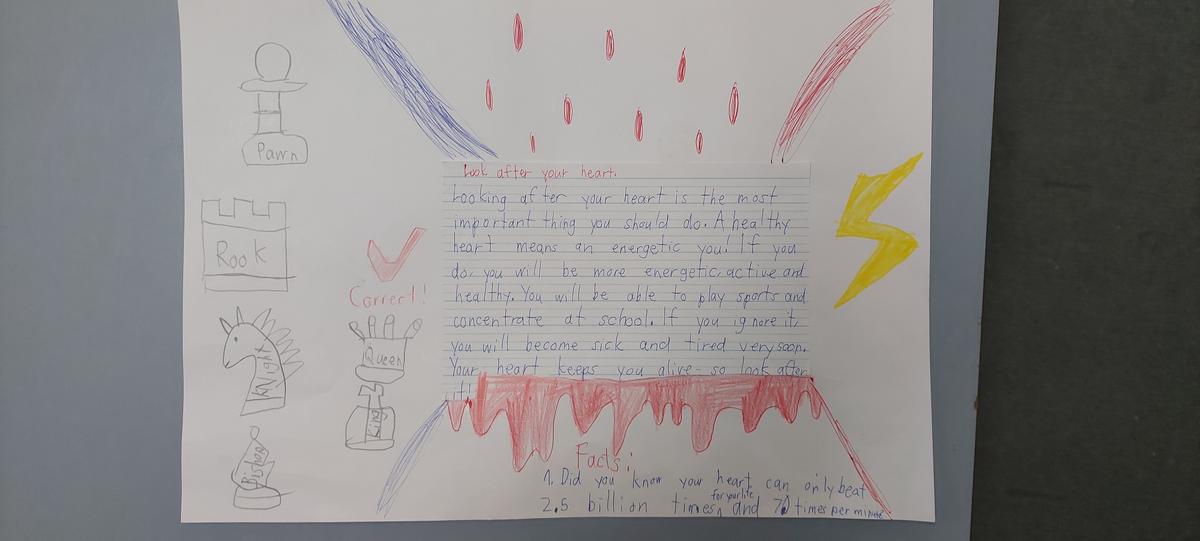 Pawn
Rook
Knight
Bishop
Correct!
Queen
King
Look after your heart.
Looking after your heart is the most
important thing you should do. A healthy
heart means an energetic you! If you
do, you will be more energetic, active and
healthy. You will be able to play sports and
concentrate at school. If you ignore it,
you will become sick and tired very soon.
Your heart keeps you alive - so look after
it!
Facts:
1. Did you know your heart can only beat
2.5 billion times for your life and 70 times per minute